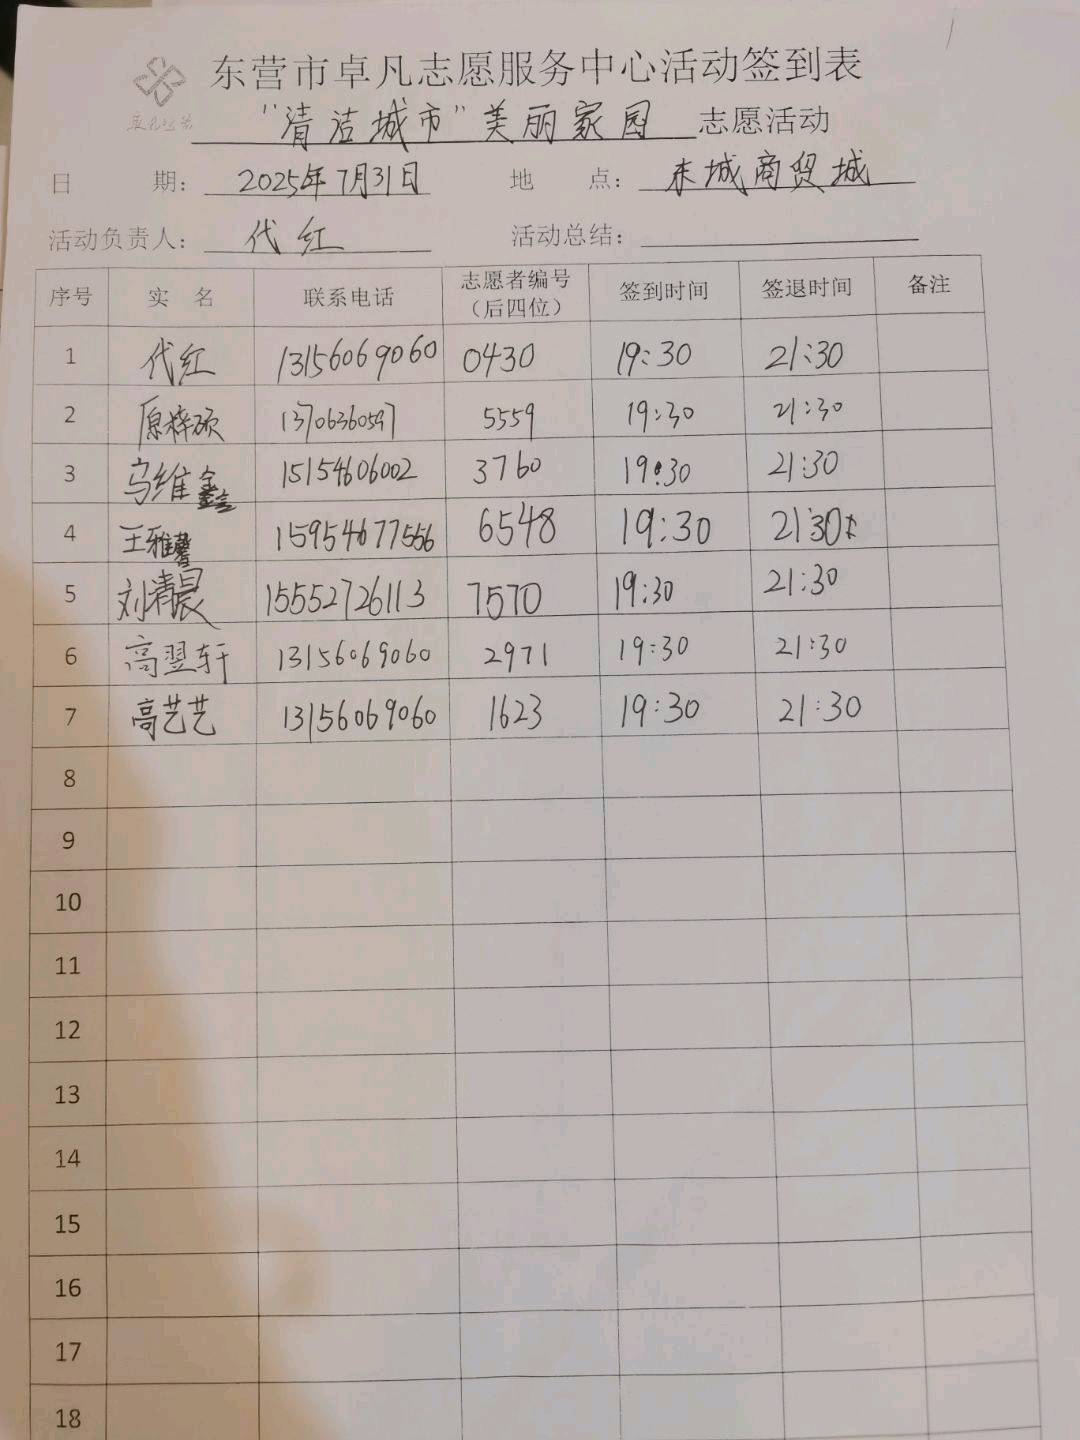 东营市卓凡志愿服务中心活动签到表
"清洁城市"美丽家园 志愿活动
日 期： 2025年7月31日 地 点： 东城商贸城
活动负责人： 代红 活动总结：
序号 实 名 联系电话 志愿者编号（后四位） 签到时间 签退时间 备注
1 代红 13156069060 0430 19:30 21:30
2 原梓硕 13706360597 5559 19:30 21:30
3 维 15154606002 3760 19:30 21:30
4 王雅馨 15954677556 6548 19:30 21:30
5 刘清晨 15552726113 7570 19:30 21:30
6 高翌轩 13156069060 2971 19:30 21:30
7 高艺艺 13156069060 1623 19:30 21:30
8
9
10
11
12
13
14
15
16
17
18